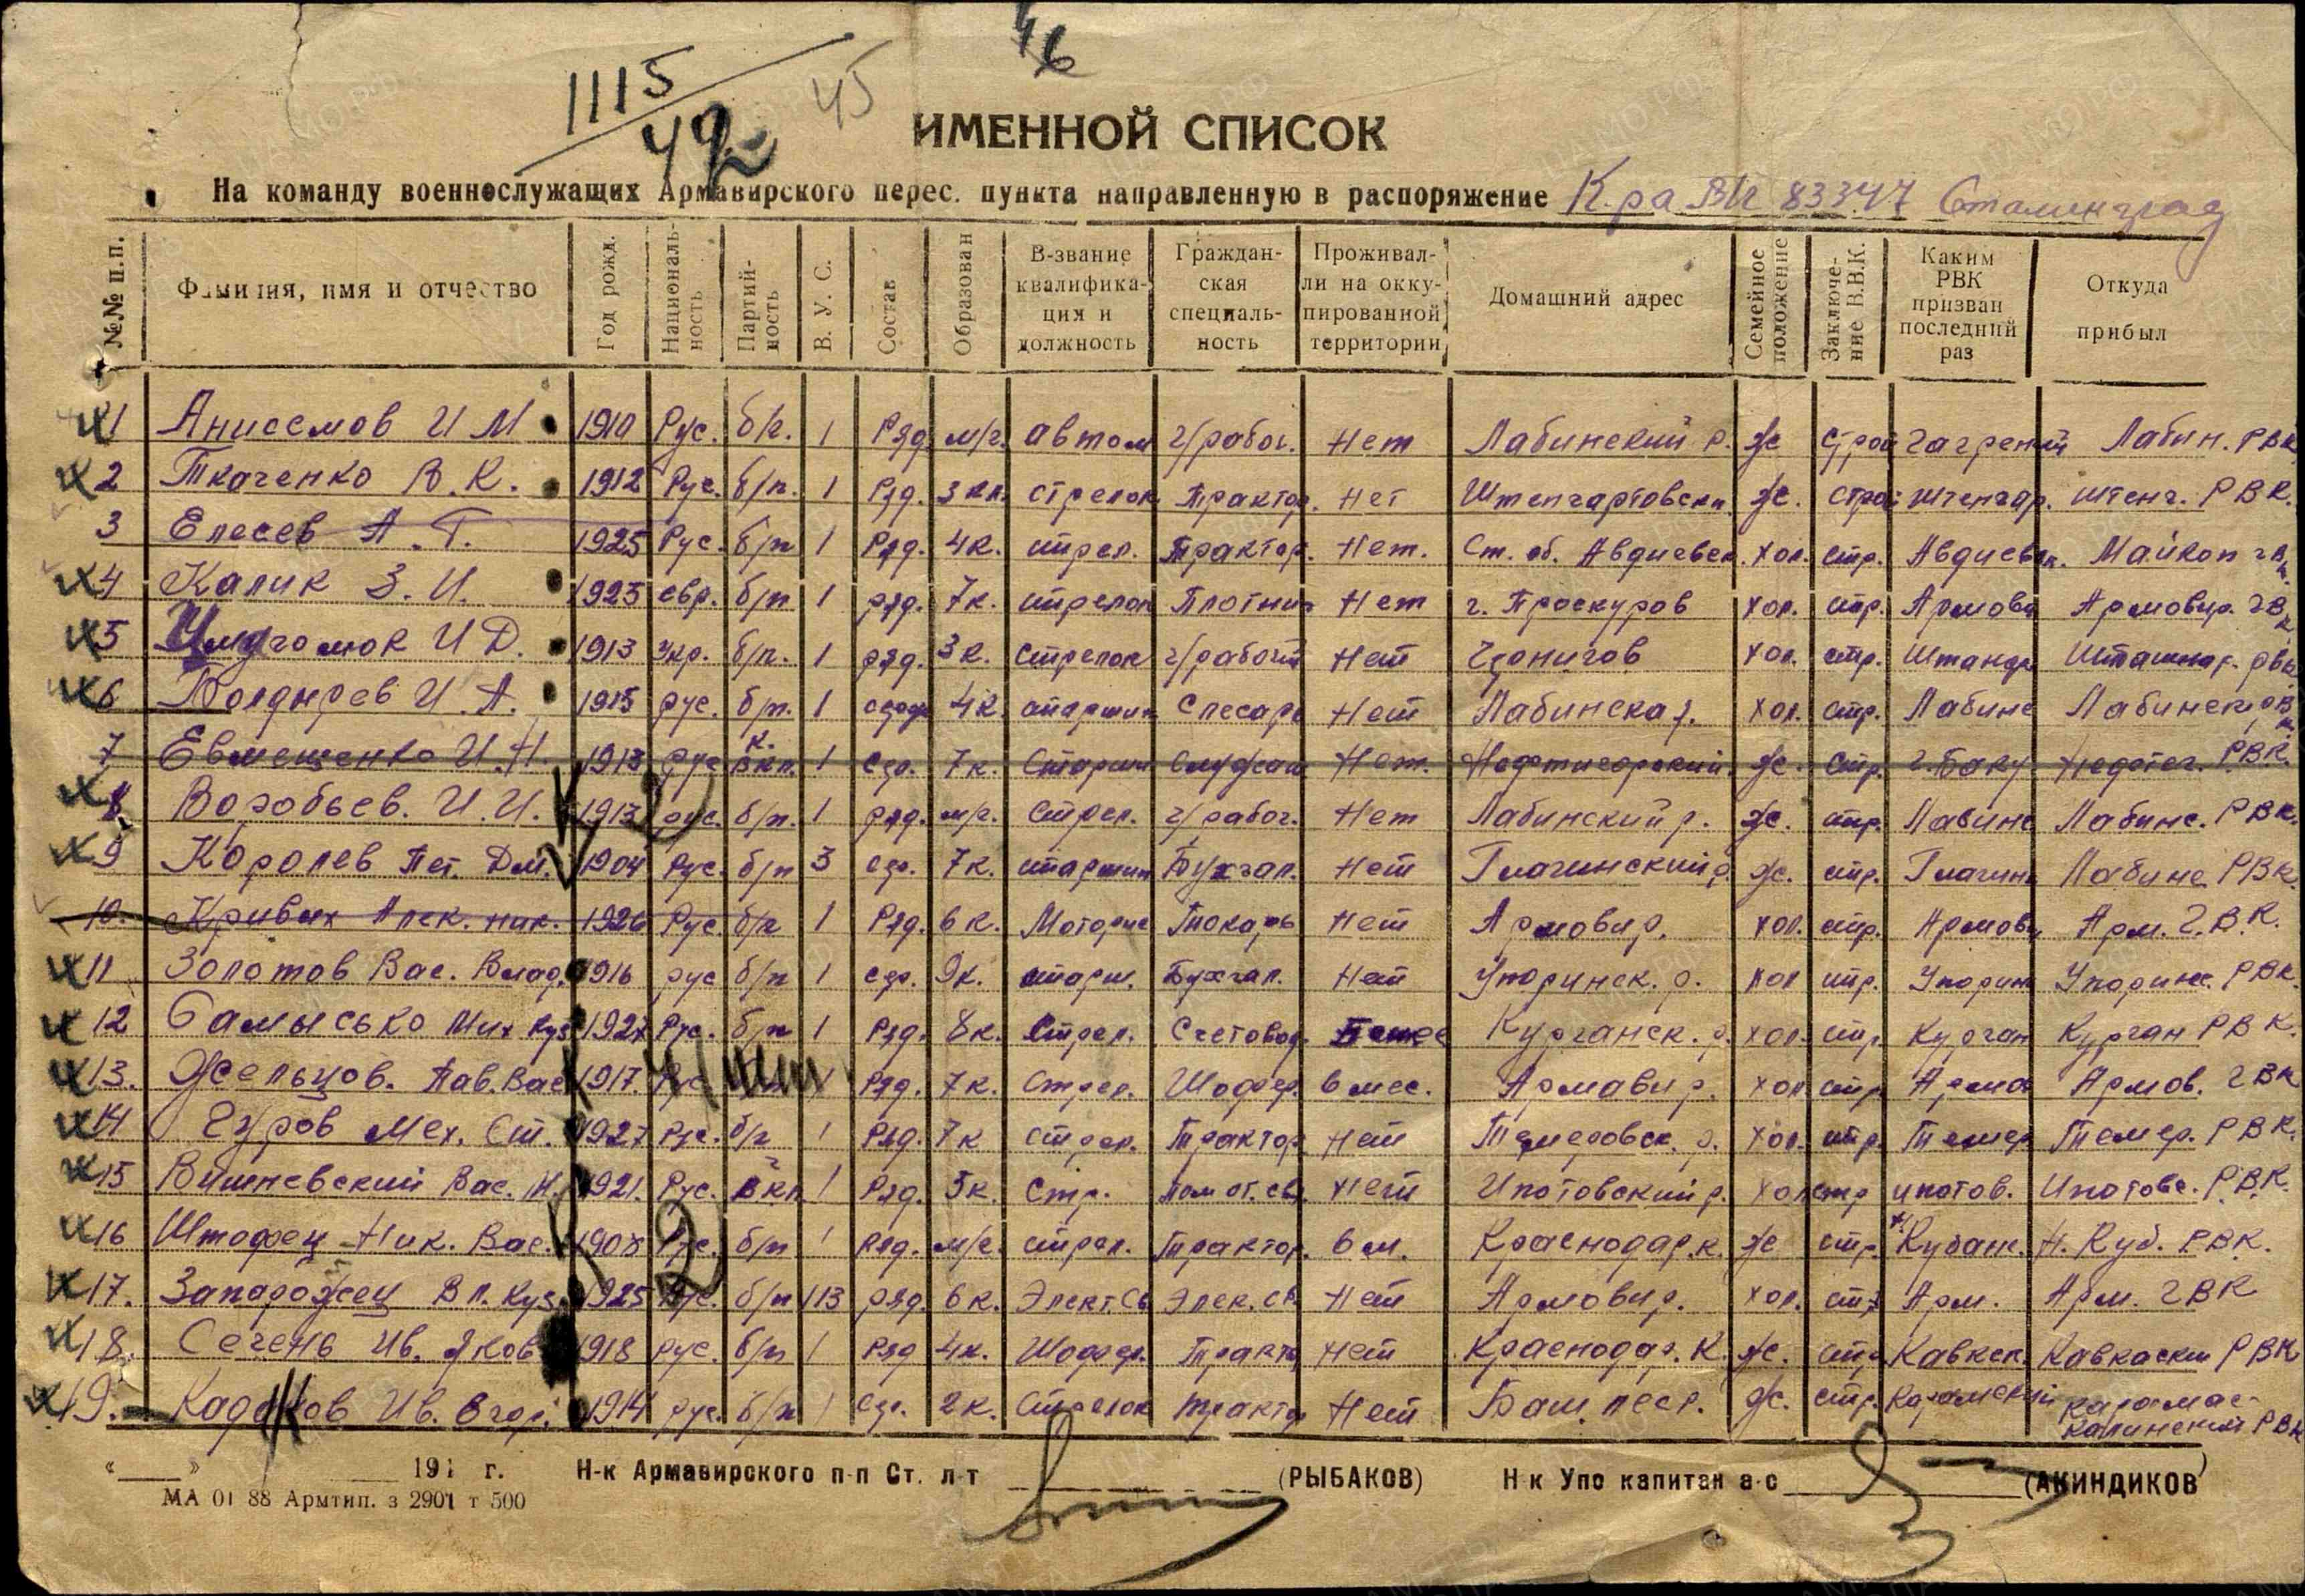 46
1115
49 45
ИМЕННОЙ СПИСОК
На команду военнослужащих Армавирского перес. пункта направленную в распоряжение К-ра В/ч 83347 Сталинград
№№ п.п. Фамилия, имя и отчество Год рожд. Националь-ность Партий-ность В. У. С. Состав Образован В-звание квалифика-ция и должность Граждан-ская специаль-ность Проживал-ли на окку-пированной территории Домашний адрес Семейное положение Заключе-ние В.В.К. Каким РВК призван последний раз Откуда прибыл
1 Аниссмов И М 1910 Рус. б/п. 1 Ряд. м/г. автом ч/рабоч. Нет Лабинский р. ж Строй Лабин. РВК
2 Ткаченко В. К. 1912 Рус. б/п. 1 Ряд. 3 кл. стрелок Трактор. Нет ж. Строй Штенгар. Штенг. РВК.
3 Елесев А. Т. 1925 Рус. б/п 1 Ряд. 4к. стрел. Трактор. Нет. Ст. об. Авдиевск. хол. стр. Авдиевск. Майкоп гвк.
4 Калик З. И. 1925 евр. б/п 1 ряд. 7к. стрелок Плотник Нет г. Проскуров хол. стр. Армови Армовир. ГВК
5 И Д. 1913 Укр. б/п. 1 ряд. 3к. Стрелок ч/рабочий Нет хол. стр. Штанд. рвк
6 Болдырев И. А. 1915 рус. б/п. 1 4к. старшин Слесарь Нет Лабинска р. хол. стр. Лабинс Лабинск рвк
7 Евмещенко И. Н. 1913 рус к. ВКП. 1 Сер. 7к. Старшин Служащ Нет. Нефтигорский. ж. стр. г. Баку Нефтег. РВК.
8 Воробьев. И. И. 1913 рус. б/п. 1 ряд. м/г. стрел. ч/рабоч. Нет Лабинский р. ж. стр. Лабинс Лабинс. РВК.
9 Королев Пет. Дм. 1904 Рус. б/п 3 сер. 7к. старшин Бухгал. Нет ж. стр. Лабинс РВК.
10. Кривых Алек. Ник. 1926 Рус б/п 1 Ряд. 6к. Моторис Токарь Нет Армовир. хол. стр. Армови Арм. Г.В.К.
11 Золотов Вас. Влад. 1916 рус б/п 1 сер. 9к. старш. Бухгал. Нет Упоринск. р. хол стр. Упорин Упоринс. РВК.
12 Самысько Мих Куз 1927 Рус. б/п 1 Ряд. 8к. Стрел. Счетовод. Курганск. р. хол. стр. Курган Курган РВК.
13. Жельцов. Пав. Вас 1917. 1 Ряд. 7к. Стрел. Шофер. 6 мес. Армавир. хол стр. Армов Армов. ГВК
14 Гуров Мех. Ст. 1927 Рус. б/п 1 Ряд. 7к стрел. Трактор. Нет Темеровск. р. хол. стр. Темер Темер. РВК.
15 Вишневский Вас. Н. 1921. Рус. ВКП 1 Ряд. 5к. Стр. Нет Ипотовский р. хол стр ипотов. Ипотовс. Р.В.К.
16 Штофец Ник. Вас. 1908 Рус. б/п 1 Ряд. м/г. стрел. Трактор. 6 м. Краснодар. к. ж стр. Н. Кубан. Н. Куб. РВК.
17. Запарожец Вл. Куз. 1925 Рус. б/п 113 ряд. 6к. Элект. св Элек. св. Нет Армовир. хол. стр. Арм. Арм. ГВК
18. Сечень Ив. Яков 1918 рус. б/п 1 Ряд 4к. Шофер. Тракто Нет Краснодар. К. ж. стр Кавкск. Кавкаский РВК
19. Ив. Егор. 1914 рус. б/п 1 Сер. 2к. Стрелок трактор Нет Баш. песр. ж. стр. Калинский РВК
« » 191 г. Н-к Армавирского п-п Ст. л-т (РЫБАКОВ) Н-к Упс капитан а-с (АКИНДИКОВ)
МА 01 88 Армтип. з 2901 т 500